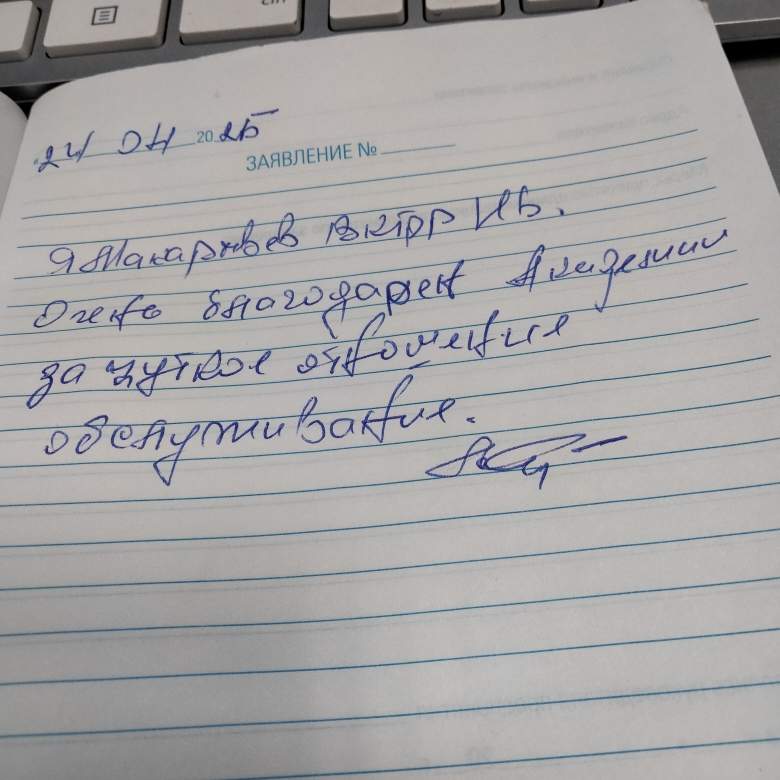 24 04 2025
ЗАЯВЛЕНИЕ № 
Я Виктор Ив.
Очень благодарен Академии
за чуткое отношение
обслуживание.